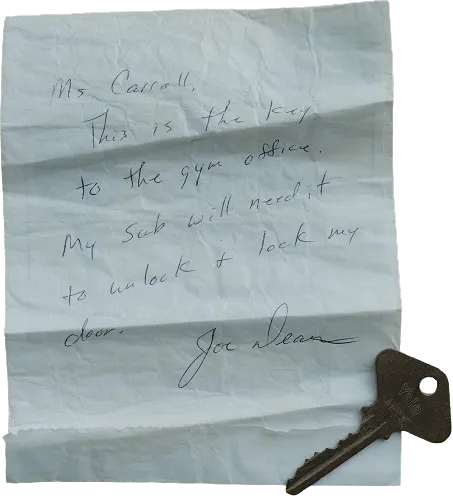 Ms Carroll,
This is the key
to the gym office.
My Sub will need it
to unlock & lock my
door.
Joe Dean